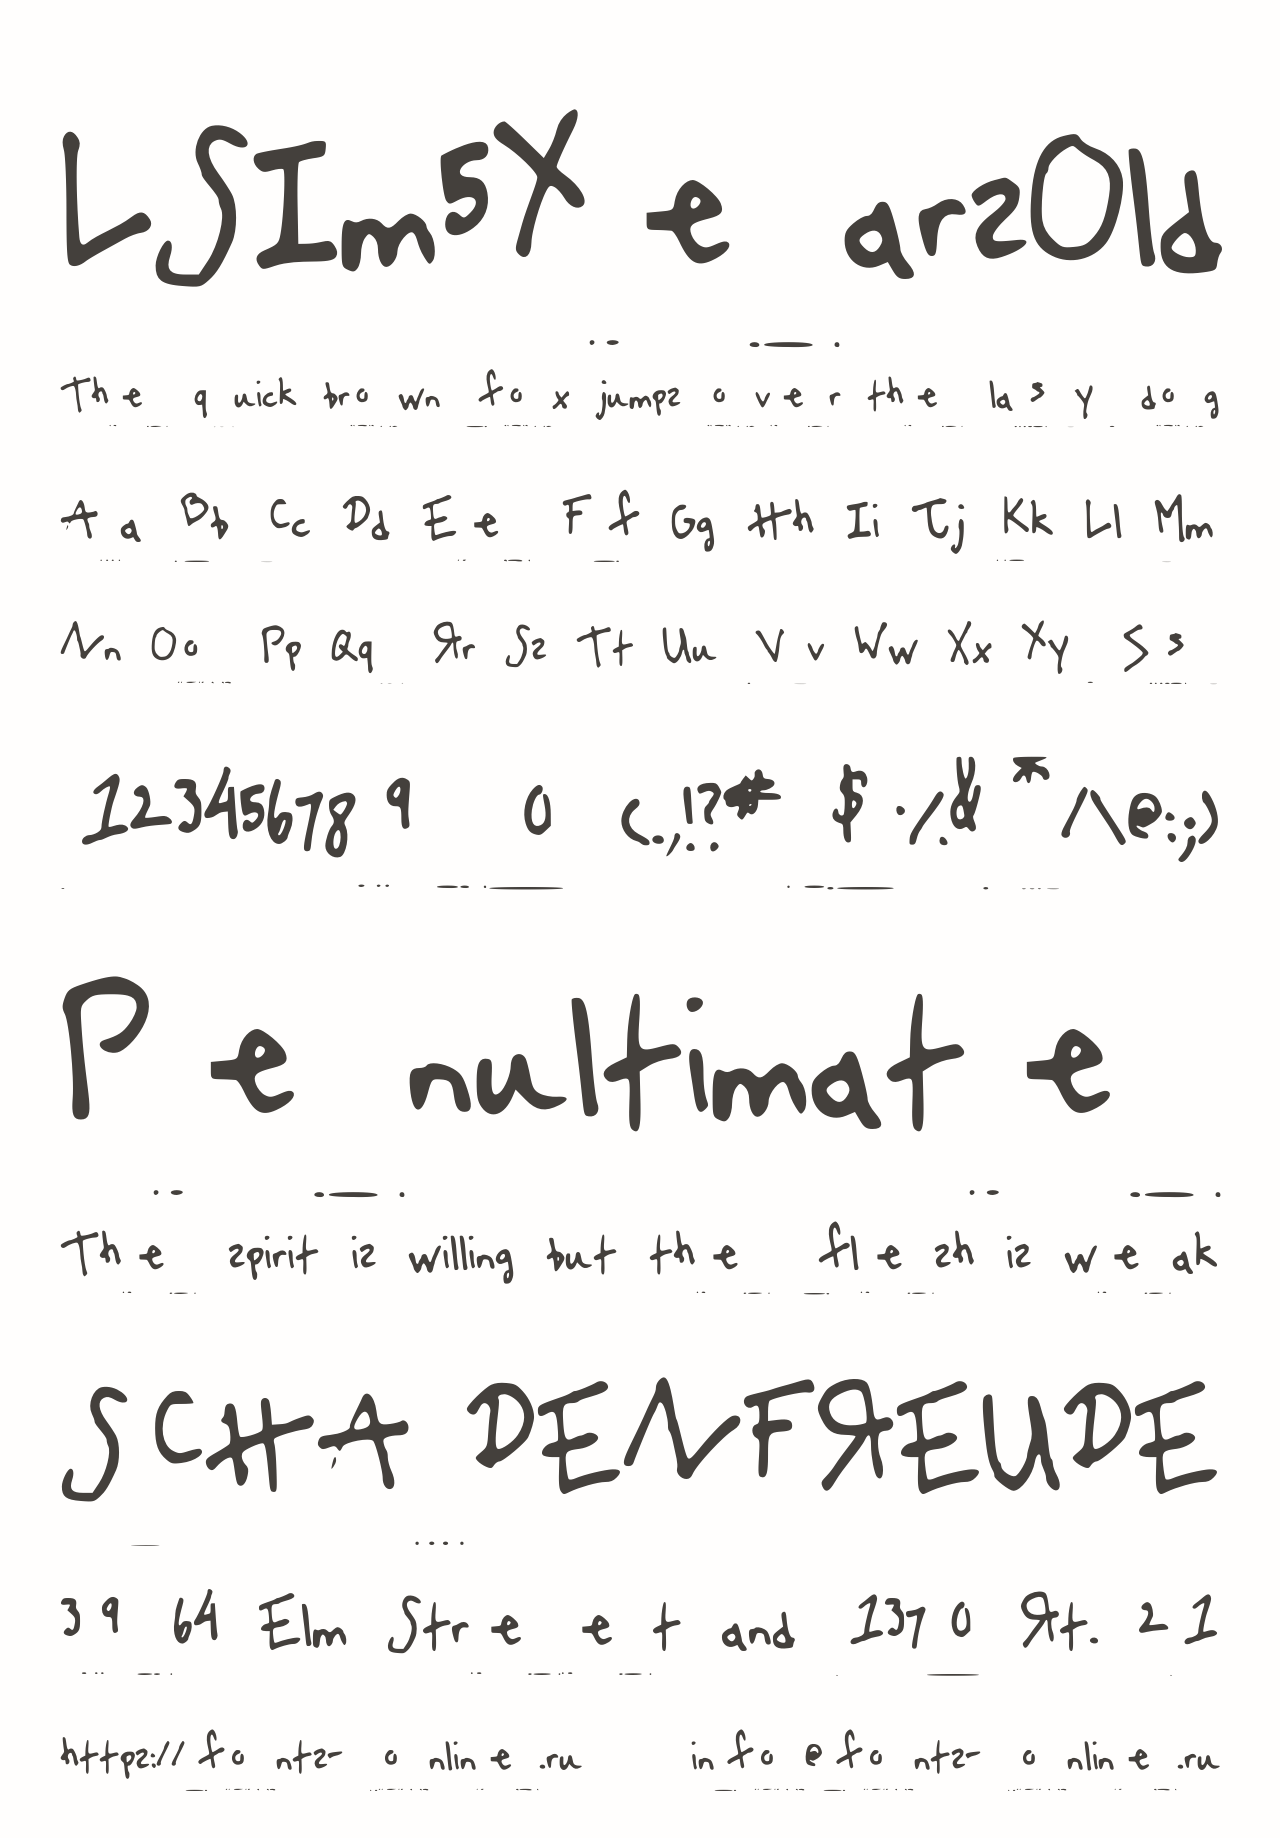 LSIm5YearsOld
The quick brown fox jumps over the lazy dog
Aa Bb Cc Dd Ee Ff Gg Hh Ii Jj Kk Ll Mm
Nn Oo Pp Qq Rr Ss Tt Uu Vv Ww Xx Yy Zz
1234567890 (.,!?#$%&*/\@:;)
Penultimate
The spirit is willing but the flesh is weak
SCHADENFREUDE
3964 Elm Street and 1370 Rt. 21
https://fonts-online.ru info@fonts-online.ru